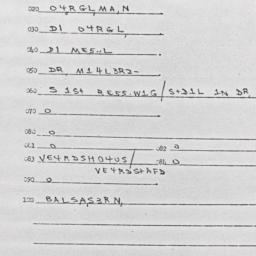 020 O4,RGL,MA,N
030 DI O4RGL,
040 DI ME5-L
050 DR, M14L3R2-
060 S 1St RE55.W1G/S+21L 1N DR,
070 O
080 O
081 O 082 O
083 VE4RDSHO4US/ 084 O
VE4RDS+AFD
090 O
100 BALSAS3RN,